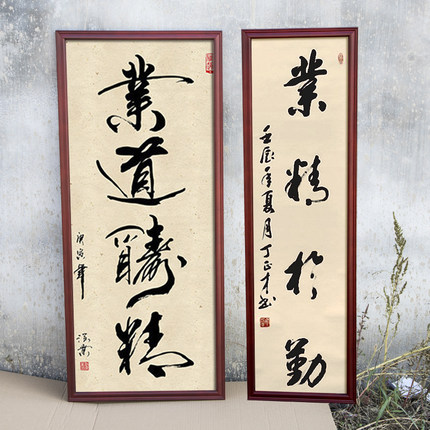 業道醻精
庚寅
業精於勤
壬辰年夏月丁正才书